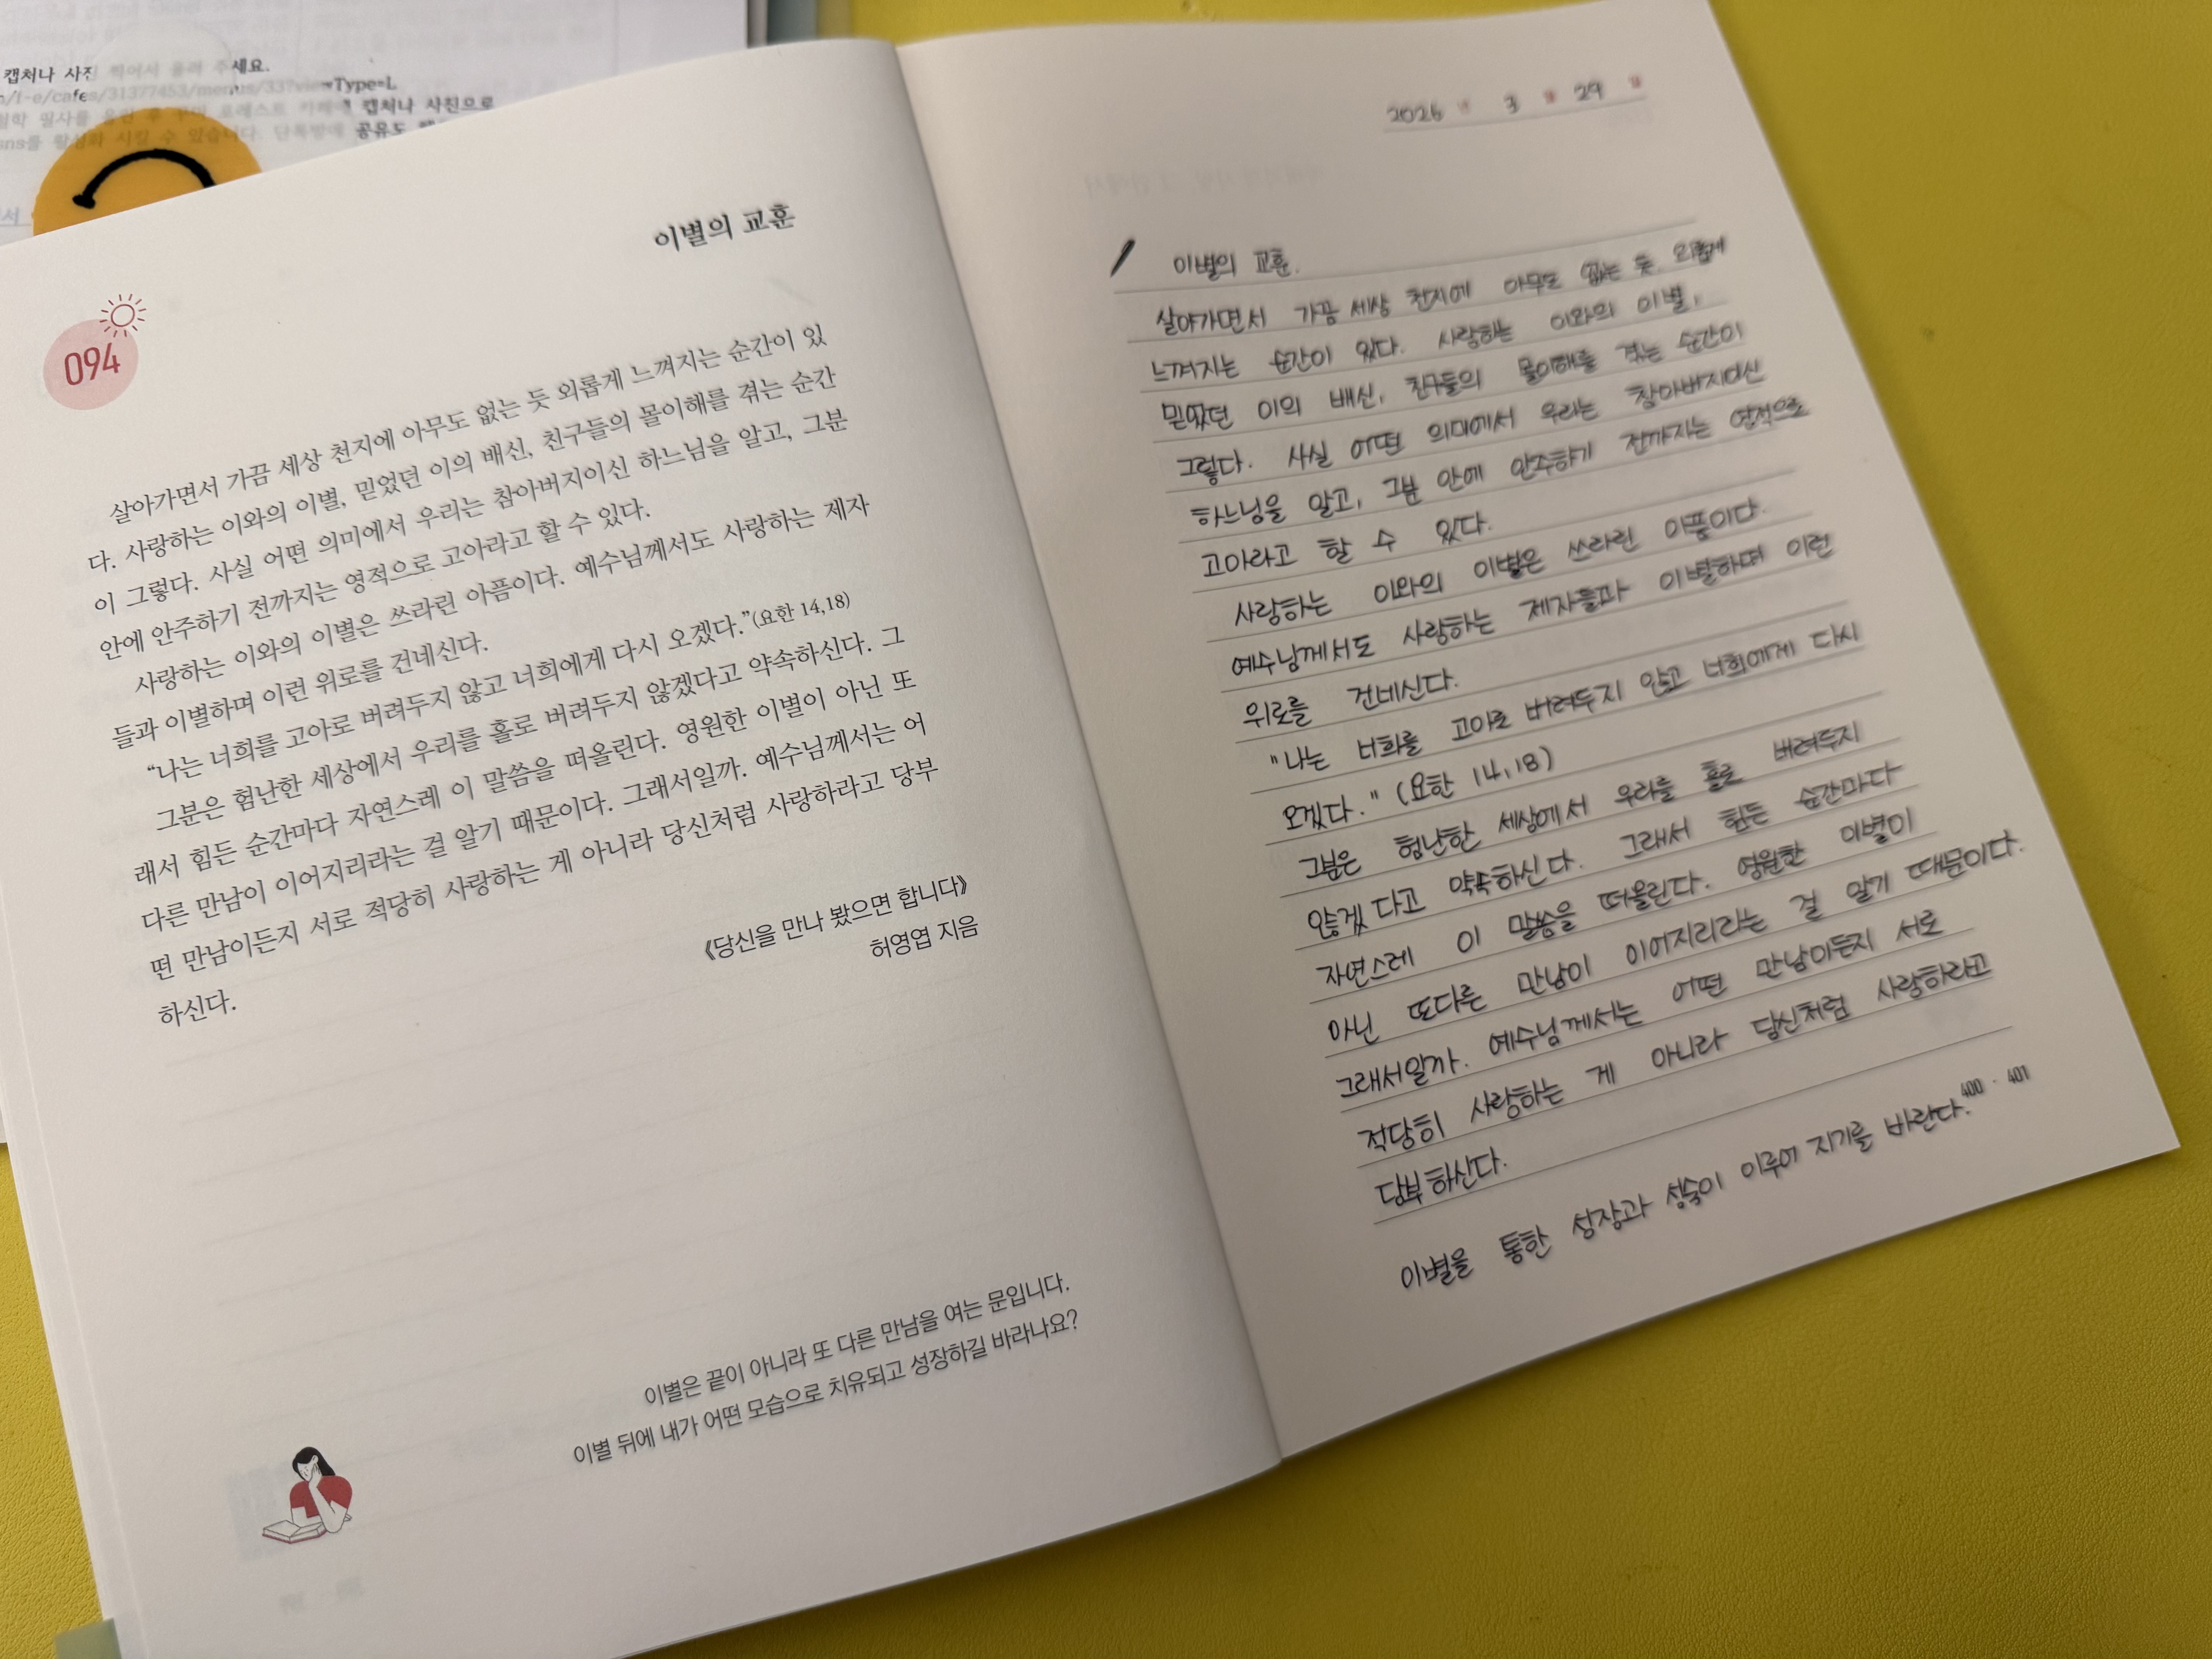 캡처나 사진 찍어서 올려 주세요.
/f-e/cafes/31377453/menus/33?viewType=L
캡처나 사진으로
공유도
이별의 교훈
094
살아가면서 가끔 세상 천지에 아무도 없는 듯 외롭게 느껴지는 순간이 있
다. 사랑하는 이와의 이별, 믿었던 이의 배신, 친구들의 몰이해를 겪는 순간
이 그렇다. 사실 어떤 의미에서 우리는 참아버지이신 하느님을 알고, 그분
안에 안주하기 전까지는 영적으로 고아라고 할 수 있다.
사랑하는 이와의 이별은 쓰라린 아픔이다. 예수님께서도 사랑하는 제자
들과 이별하며 이런 위로를 건네신다.
“나는 너희를 고아로 버려두지 않고 너희에게 다시 오겠다.”(요한 14,18)
그분은 험난한 세상에서 우리를 홀로 버려두지 않겠다고 약속하신다. 그
래서 힘든 순간마다 자연스레 이 말씀을 떠올린다. 영원한 이별이 아닌 또
다른 만남이 이어지리라는 걸 알기 때문이다. 그래서일까. 예수님께서는 어
떤 만남이든지 서로 적당히 사랑하는 게 아니라 당신처럼 사랑하라고 당부
하신다.
《당신을 만나 봤으면 합니다》
허영엽 지음
이별은 끝이 아니라 또 다른 만남을 여는 문입니다.
이별 뒤에 내가 어떤 모습으로 치유되고 성장하길 바라나요?
2026 년 3 월 29 일
이별의 교훈.
살아가면서 가끔 세상 천지에 아무도 없는 듯 외롭게
느껴지는 순간이 있다. 사랑하는 이와의 이별,
믿었던 이의 배신, 친구들의 몰이해를 겪는 순간이
그렇다. 사실 어떤 의미에서 우리는 참아버지이신
하느님을 알고, 그분 안에 안주하기 전까지는 영적으로
고아라고 할 수 있다.
사랑하는 이와의 이별은 쓰라린 아픔이다.
예수님께서도 사랑하는 제자들과 이별하며 이런
위로를 건네신다.
"나는 너희를 고아로 버려두지 않고 너희에게 다시
오겠다." (요한 14,18)
그분은 험난한 세상에서 우리를 홀로 버려두지
않겠다고 약속하신다. 그래서 힘든 순간마다
자연스레 이 말씀을 떠올린다. 영원한 이별이
아닌 또다른 만남이 이어지리라는 걸 알기 때문이다.
그래서일까. 예수님께서는 어떤 만남이든지 서로
적당히 사랑하는 게 아니라 당신처럼 사랑하라고
당부하신다.
400 · 401
이별을 통한 성장과 성숙이 이루어 지기를 바란다.